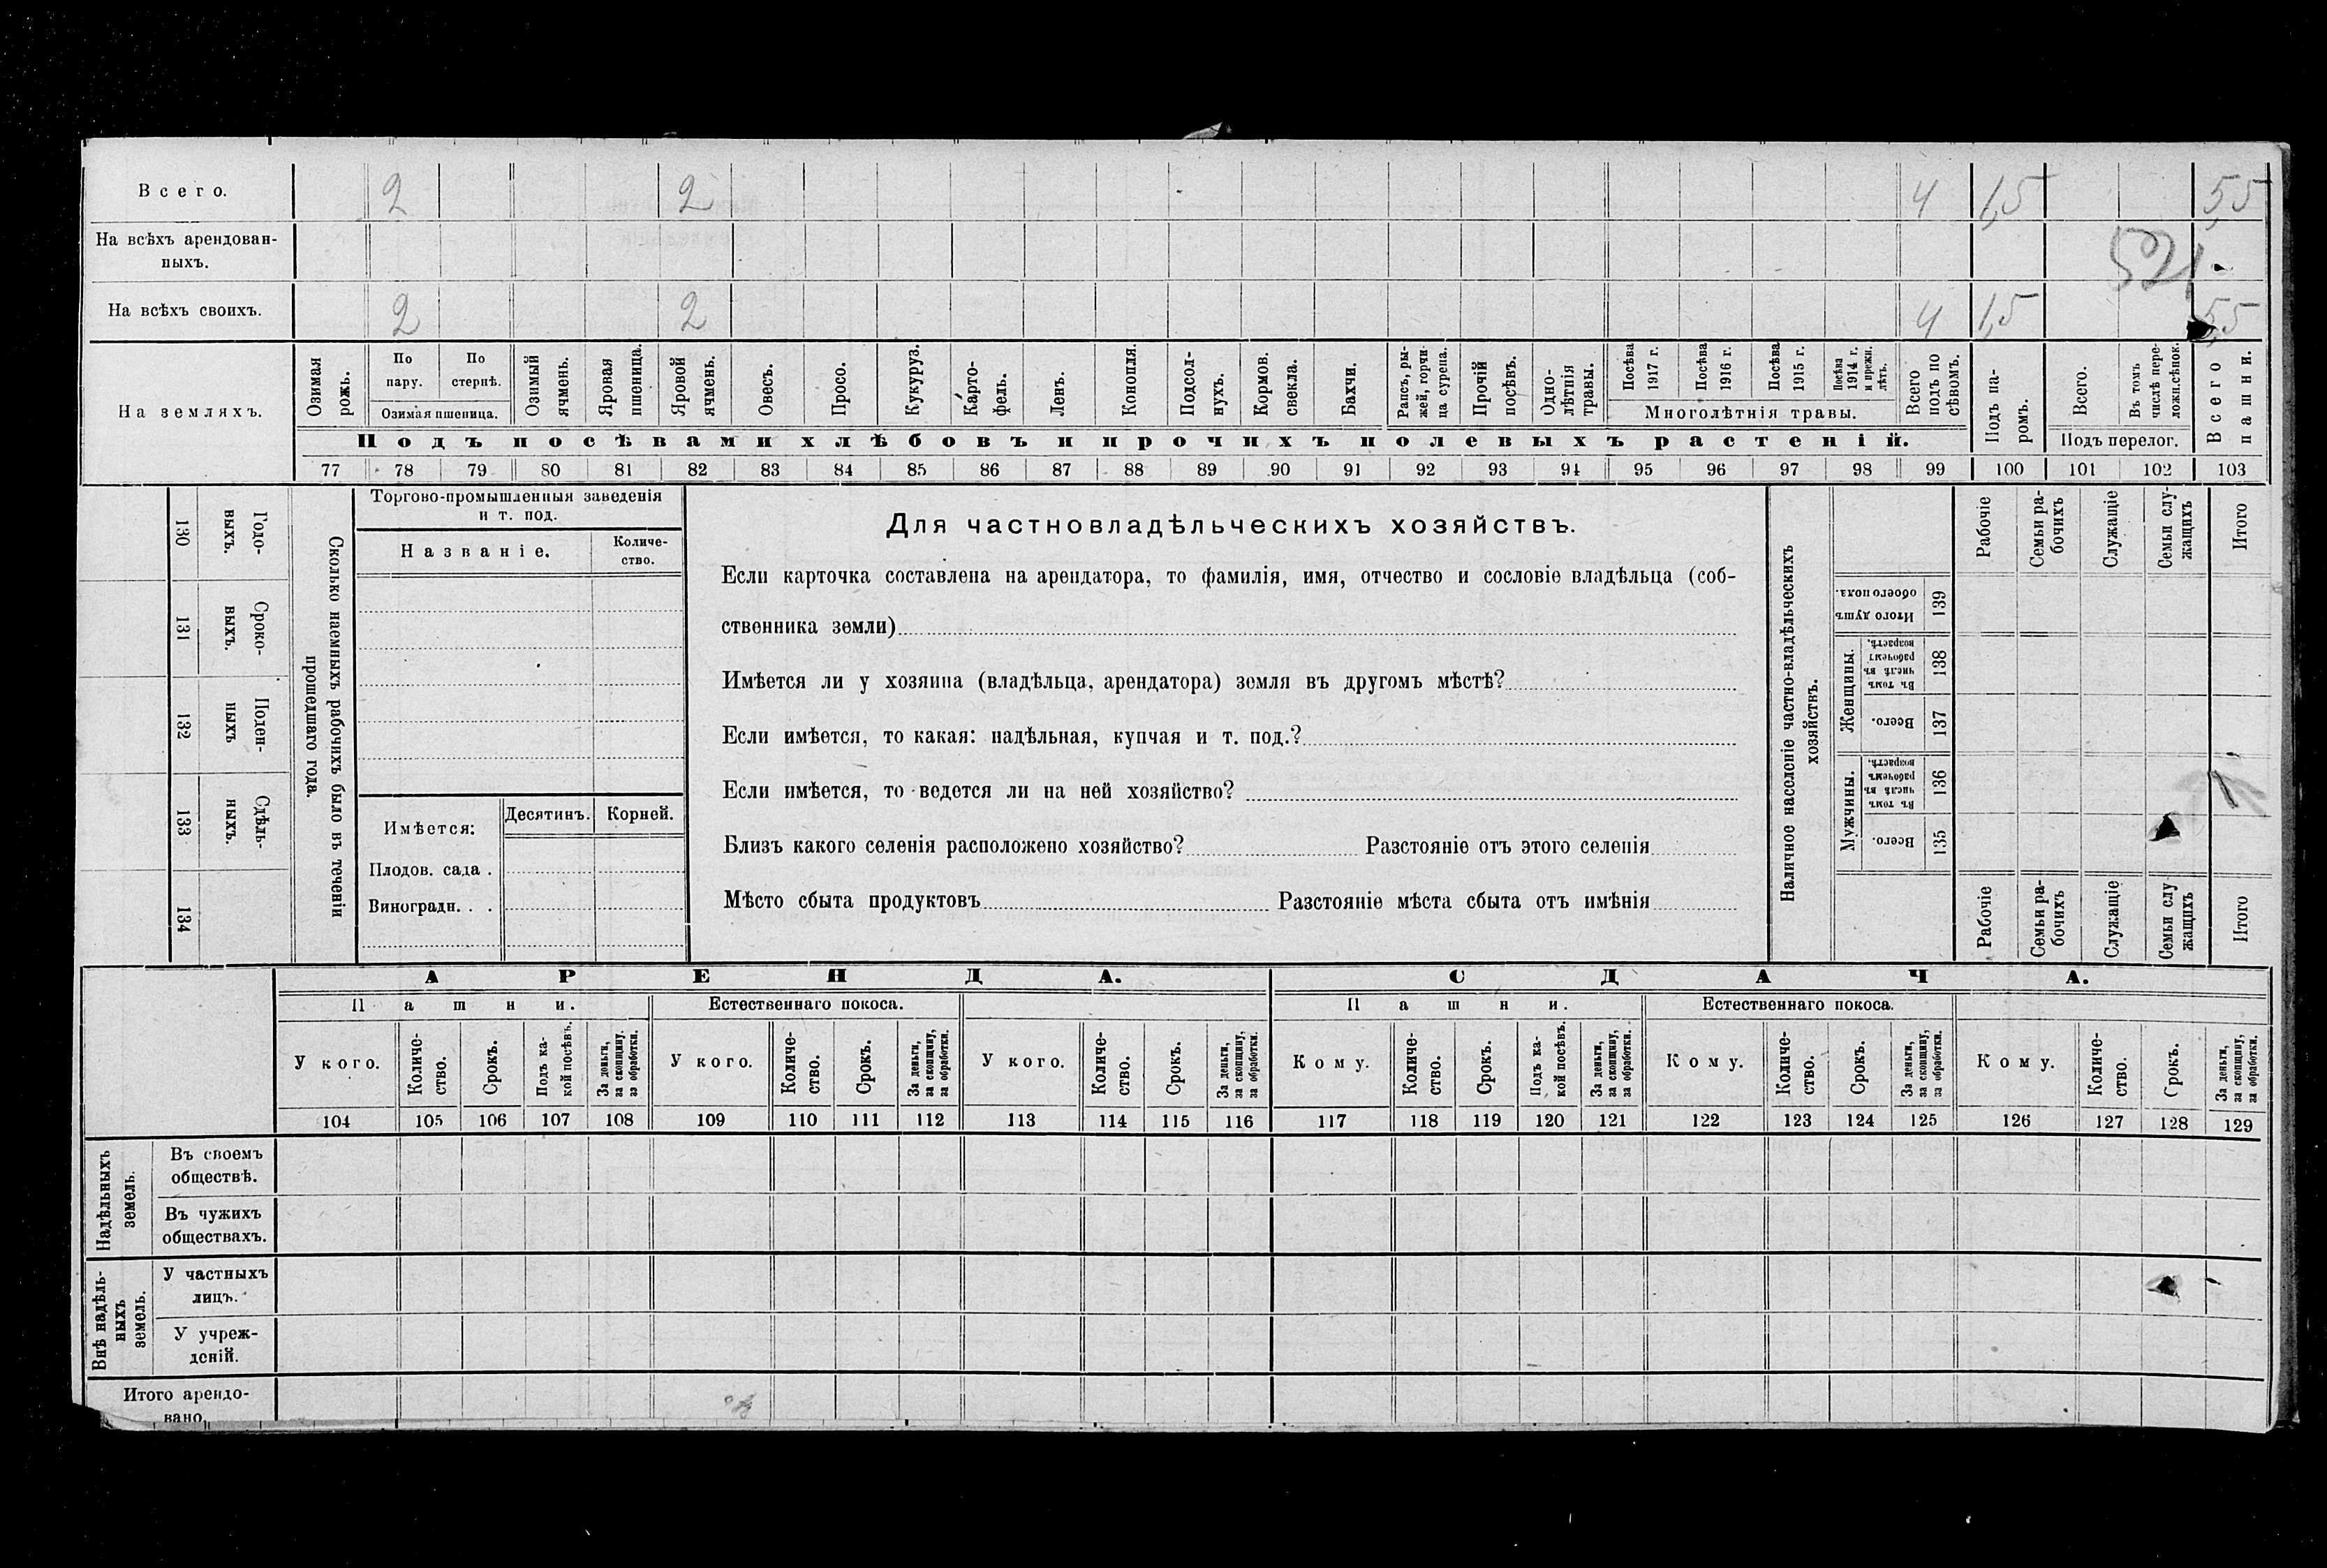 Всего. 2 2 4 1,5 5,5
На всѣхъ арендован-
ныхъ.
521
На всѣхъ своихъ. 2 2 4 1,5 5,5
На земляхъ.
Озимая рожь.
По пару.
По стернѣ.
Озимая пшеница.
Озимый ячмень.
Яровая пшеница.
Яровой ячмень.
Овесъ.
Просо.
Кукуруз.
Карто-
фель.
Ленъ.
Конопля.
Подсол-
нухъ.
Кормов. свекла.
Бахчи.
Рапсъ, ры-
жей, горчи-
ца сурепа.
Прочій посѣвъ.
Одно-
лѣтнія травы.
Посѣва 1917 г.
Посѣва 1916 г.
Посѣва 1915 г.
Посѣва 1914 г. и прежн. лѣтъ.
Многолѣтнія травы.
Всего подъ по сѣвомъ.
Подъ па-
ромъ.
Всего.
Въ томъ числѣ пере-
ложн.сѣнок.
Подъ перелог.
Всего пашни.
Подъ посѣвами хлѣбовъ и прочихъ полевыхъ растеній.
77 78 79 80 81 82 83 84 85 86 87 88 89 90 91 92 93 94 95 96 97 98 99 100 101 102 103
130 Годо-
выхъ.
131 Сроко-
выхъ.
132 Поден-
ныхъ
133 Сдѣль-
ныхъ.
134
Сколько наемныхъ рабочихъ было въ теченіи
прошедшаго года.
Торгово-промышленныя заведенія
и т. под.
Названіе.
Количе-
ство.
Имѣется: Десятинъ. Корней.
Плодов. сада .
Виноградн. . .
Для частновладѣльческихъ хозяйствъ.
Если карточка составлена на арендатора, то фамилія, имя, отчество и сословіе владѣльца (соб-
ственника земли)
Имѣется ли у хозяина (владѣльца, арендатора) земля въ другомъ мѣстѣ?
Если имѣется, то какая: надѣльная, купчая и т. под.?
Если имѣется, то ведется ли на ней хозяйство?
Близъ какого селенія расположено хозяйство? Разстояніе отъ этого селенія
Мѣсто сбыта продуктовъ Разстояніе мѣста сбыта отъ имѣнія
Наличное населеніе частно-владѣльческихъ
хозяйствъ.
Рабочіе
Семьи ра-
бочихъ
Служащіе
Семьи слу-
жащихъ
Итого
Итого душъ обоего пола. 139
Женщины.
Въ томъ числѣ въ рабочемъ возрастѣ. 138
Всего. 137
Мужчины.
Въ томъ числѣ въ рабочемъ возрастѣ. 136
Всего. 135
Рабочіе
Семьи ра-
бочихъ
Служащіе
Семьи слу
жащихъ
Итого
АРЕНДА. СДАЧА.
Пашни. Естественнаго покоса. Пашни. Естественнаго покоса.
У кого.
Количе-
ство.
Срокъ.
Подъ ка-
кой посѣвъ.
За деньги,
за скопщину,
за обработки.
У кого.
Количе-
ство.
Срокъ.
За деньги,
за скопщину,
за обработки.
У кого.
Количе-
ство.
Срокъ.
За деньги,
за скопщину,
за обработки.
Кому.
Количе-
ство.
Срокъ.
Подъ ка-
кой посѣвъ.
За деньги,
за скопщину,
за обработки.
Кому.
Количе-
ство.
Срокъ.
За деньги,
за скопщину,
за обработки.
Кому.
Количе-
ство.
Срокъ.
За деньги,
за скопщину,
за обработки.
104 105 106 107 108 109 110 111 112 113 114 115 116 117 118 119 120 121 122 123 124 125 126 127 128 129
Надѣльныхъ
земель.
Въ своемъ
обществѣ.
Въ чужихъ
обществахъ.
Внѣ надѣль-
ныхъ
земель.
У частныхъ
лицъ.
У учреж-
деній.
Итого арендо-
вано.